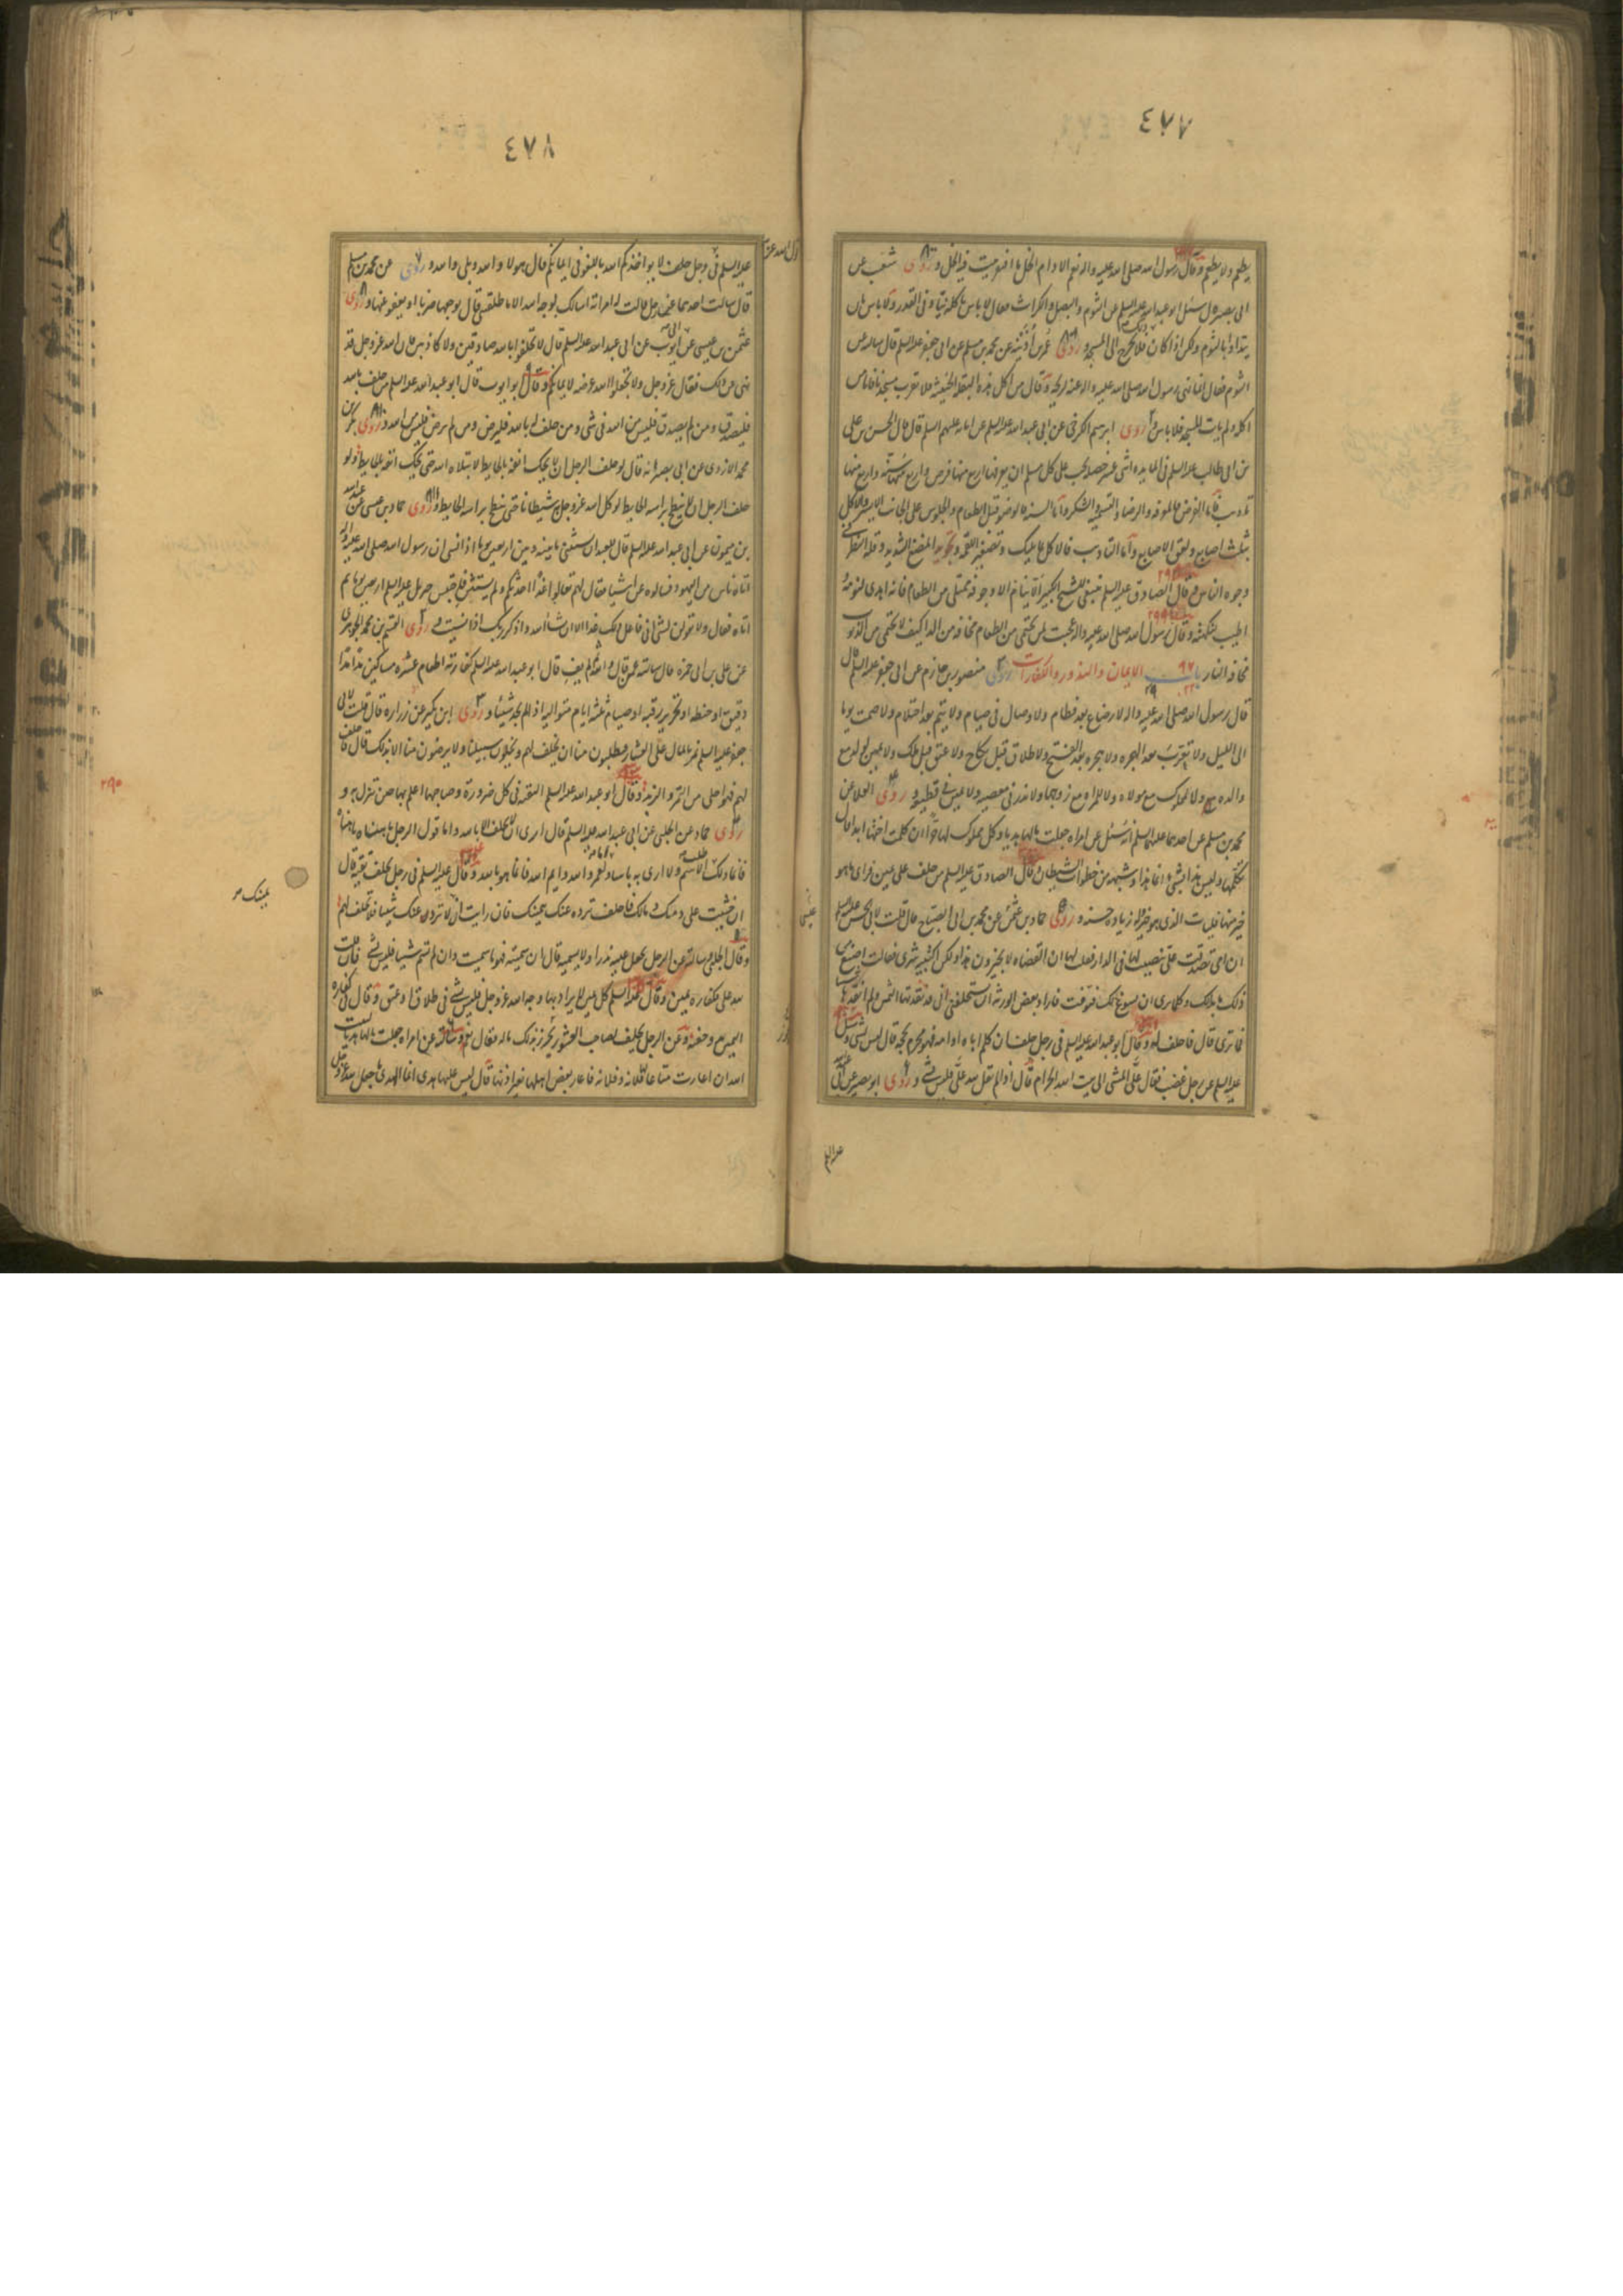 ٤٧٧
يطعم ولا يطعم وقال رسول الله صلى الله عليه واله نعم الادام الخل ما افتقر بيت فيه الخل وروى شعيب عن
ابى بصير قال سئل ابو عبد الله عليه السلم عن الثوم والبصل والكراث فقال لا باس باكله نيا وفى القدور ولا باس بان
يتداوى بالثوم ولكن اذا كان ذلك فلا يخرج الى المسجد وروى عمر بن اذينه عن محمد بن مسلم عن ابى جعفر عليه السلم قال سالته عن
الثوم فقال انما نهى رسول الله صلى الله عليه واله عنه لريحه وقال من اكل هذه البقلة الخبيثة فلا يقرب مسجدنا فاما من
اكله ولم يات المسجد فلا باس وروى ابرهيم الكرخى عن ابى عبد الله عليه السلم عن ابائه عليهم السلم قال قال الحسن بن على
بن ابى طالب عليه السلم فى المايده اثنى عشر خصله يجب على كل مسلم ان يعرفها اربع منها فرض واربع منها سنة واربع منها
تاديب فاما الفرض فالمعرفه والرضا والتسميه والشكر واما السنه فالوضو قبل الطعام والجلوس على الجانب الايسر والاكل
بثلث اصابع ولعق الاصابع واما التاديب فالاكل مما يليك وتصغير اللقمه وتجويد المضغ الشديد وقلة النظر فى
وجوه الناس وقال الصادق عليه السلم ينبغى للشيخ الكبير الا ينام الا وجوفه ممتلى من الطعام فانه اهدى لنومه
اطيب لنكهته وقال رسول الله صلى الله عليه واله عجبت لمن يحتمى من الطعام مخافه من الدا كيف لا يحتمى من الذنوب
مخافه النار باب الايمان والنذور والكفارات روى منصور بن حازم عن ابى جعفر عليه السلم قال
قال رسول الله صلى الله عليه واله لا رضاع بعد فطام ولا وصال فى صيام ولا يتم بعد احتلام ولا صمت يوما
الى الليل ولا تعرب بعد الهجره ولا هجره بعد الفتح ولا طلاق قبل نكاح ولا عتق قبل ملك ولا يمين لولد مع
والده ولا لمملوك مع مولاه ولا للمراه مع زوجها ولا نذر فى معصيه ولا يمين فى قطيعه وروى العلا عن
محمد بن مسلم عن احدهما عليهما السلم انه سئل عن امراه جعلت مالها هديا وكل مملوك لها حرا ان كلمت اختها ابدا قال
تكلمها وليس هذا بشى انما هذا وشبهه من خطوات الشيطان وقال الصادق عليه السلم من حلف على يمين فراى ما هو
خير منها فليات الذى هو خير وله زياده حسنه وروى حماد بن عثمن عن محمد بن ابى الصباح قال قلت لابى الحسن عليه السلم
ان امى تصدقت على بنصيب لها فى الدار فقلت لها ان القضاه لا يجيزون هذا ولكن اكتبيه شرى فقالت اصنع من
ذلك ما بدالك وكلما ترى ان يسوغ لك فتوثقت فاراد بعض الورثه ان يستحلفنى انى قد نقدتها الثمن ولم انقدها شيا
فما ترى قال فاحلف له وقال ابو عبد الله عليه السلم فى رجل حلف ان كلم اباه او امه فهو محرم بحجه قال ليس بشى وسئل
عليه السلم عن رجل غضب فقال على المشى الى بيت الله الحرام قال اذا لم يقل لله على فليس بشى وروى ابو بصير عن ابى عبد الله
عليه السلم
٤٧٨
عليه السلم فى وجل حلف لا يواخذكم الله باللغو فى ايمانكم قال هو لا والله وبلى والله وروى عن محمد بن مسلم
قال سالت احدهما عن رجل قالت له امراته اسالك بوجه الله الا ما طلقتنى قال يوجعها ضربا او يعفو عنها وروى
عثمن بن عيسى عن ابى ايوب عن ابى عبد الله عليه السلم قال لا تحلفوا بالله صادقين ولا كاذبين فان الله عز وجل قد
نهى عن ذلك فقال عز وجل ولا تجعلوا الله عرضه لايمانكم وقال ابو ايوب قال ابو عبد الله عليه السلم من حلف بالله
فليصدق ومن لم يصدق فليس من الله فى شى ومن حلف له بالله فليرض ومن لم يرض فليس من الله وروى بكر بن
محمد الازدى عن ابى بصير انه قال لو حلف الرجل ان لا يحك انفه بالحايط لابتلاه الله حتى يحك انفه بالحايط ولو
حلف الرجل ان لا ينطح براسه الحايط لوكل الله عز وجل به شيطانا حتى ينطح براسه الحايط وروى حماد بن عيسى عن عبد الله
بن ميمون عن ابى عبد الله عليه السلم قال للعبد ان يستثنى ما بينه وبين اربعين يوما اذا نسى ان رسول الله صلى الله عليه واله
اتاه ناس من اليهود فسالوه عن اشيا فقال لهم تعالوا غدا احدثكم ولم يستثن فاحتبس جبرئل عليه السلم اربعين يوما ثم
اتاه فقال ولا تقولن لشى انى فاعل ذلك غدا الا ان يشا الله واذكر ربك اذا نسيت وروى القسم بن محمد الجوهرى
عن على بن ابى حمزه قال سالته عمن قال والله ثم لم يف قال ابو عبد الله عليه السلم كفارته اطعام عشره مساكين مدا مدا
دقيق او حنطه او تحرير رقبه او صيام ثلثه ايام متواليه اذا لم يجد شيئا وروى ابن بكير عن زراره قال قلت لابى
جعفر عليه السلم نمر بالمال على العشار فيطلبون منا ان نحلف لهم ويخلون سبيلنا ولا يرضون منا الا بذلك قال فاحلف
لهم فهو احلى من التمر والزبد وقال ابو عبد الله عليه السلم التقيه فى كل ضرورة وصاحبها اعلم بها حين تنزل به و
روى حماد عن الحلبى عن ابى عبد الله عليه السلم قال ارى ان لا يحلف الا بالله واما قول الرجل
فانما ذلك لطلب الاسم ولا ارى به باسا ولعمر الله وايم الله فانما هو بالله وقال عليه السلم فى رجل يحلف تقيه قال
ان خشيت على دمك ومالك فاحلف ترده عنك بيمينك فان رايت ان لا تردد عنك شيئا فلا تحلف لهم
وقال الحلبى وسالته عن الرجل يجعل عليه نذرا ولا يسميه قال ان سميته فهو ما سميت وان لم تسم شيا فليس بشى فان قلت
لله على فكفاره يمين وقال عليه السلم كل يمين لا يراد بها وجه الله عز وجل فليس بشى فى طلاق او عتق وقال فى كفاره
اليمين وحفنه وعن الرجل يحلف لصاحب العشور يحرز بذلك ماله فقال نعم وسالته عن امراه جعلت مالها هديا لبيت
الله ان اعارت متاعا لفلانه وفلانه فاعار بعض اهلها بغير اذنها قال ليس عليها هدى انما الهدى ما جعل لله عز وجل
بيمينك
٢٩٥